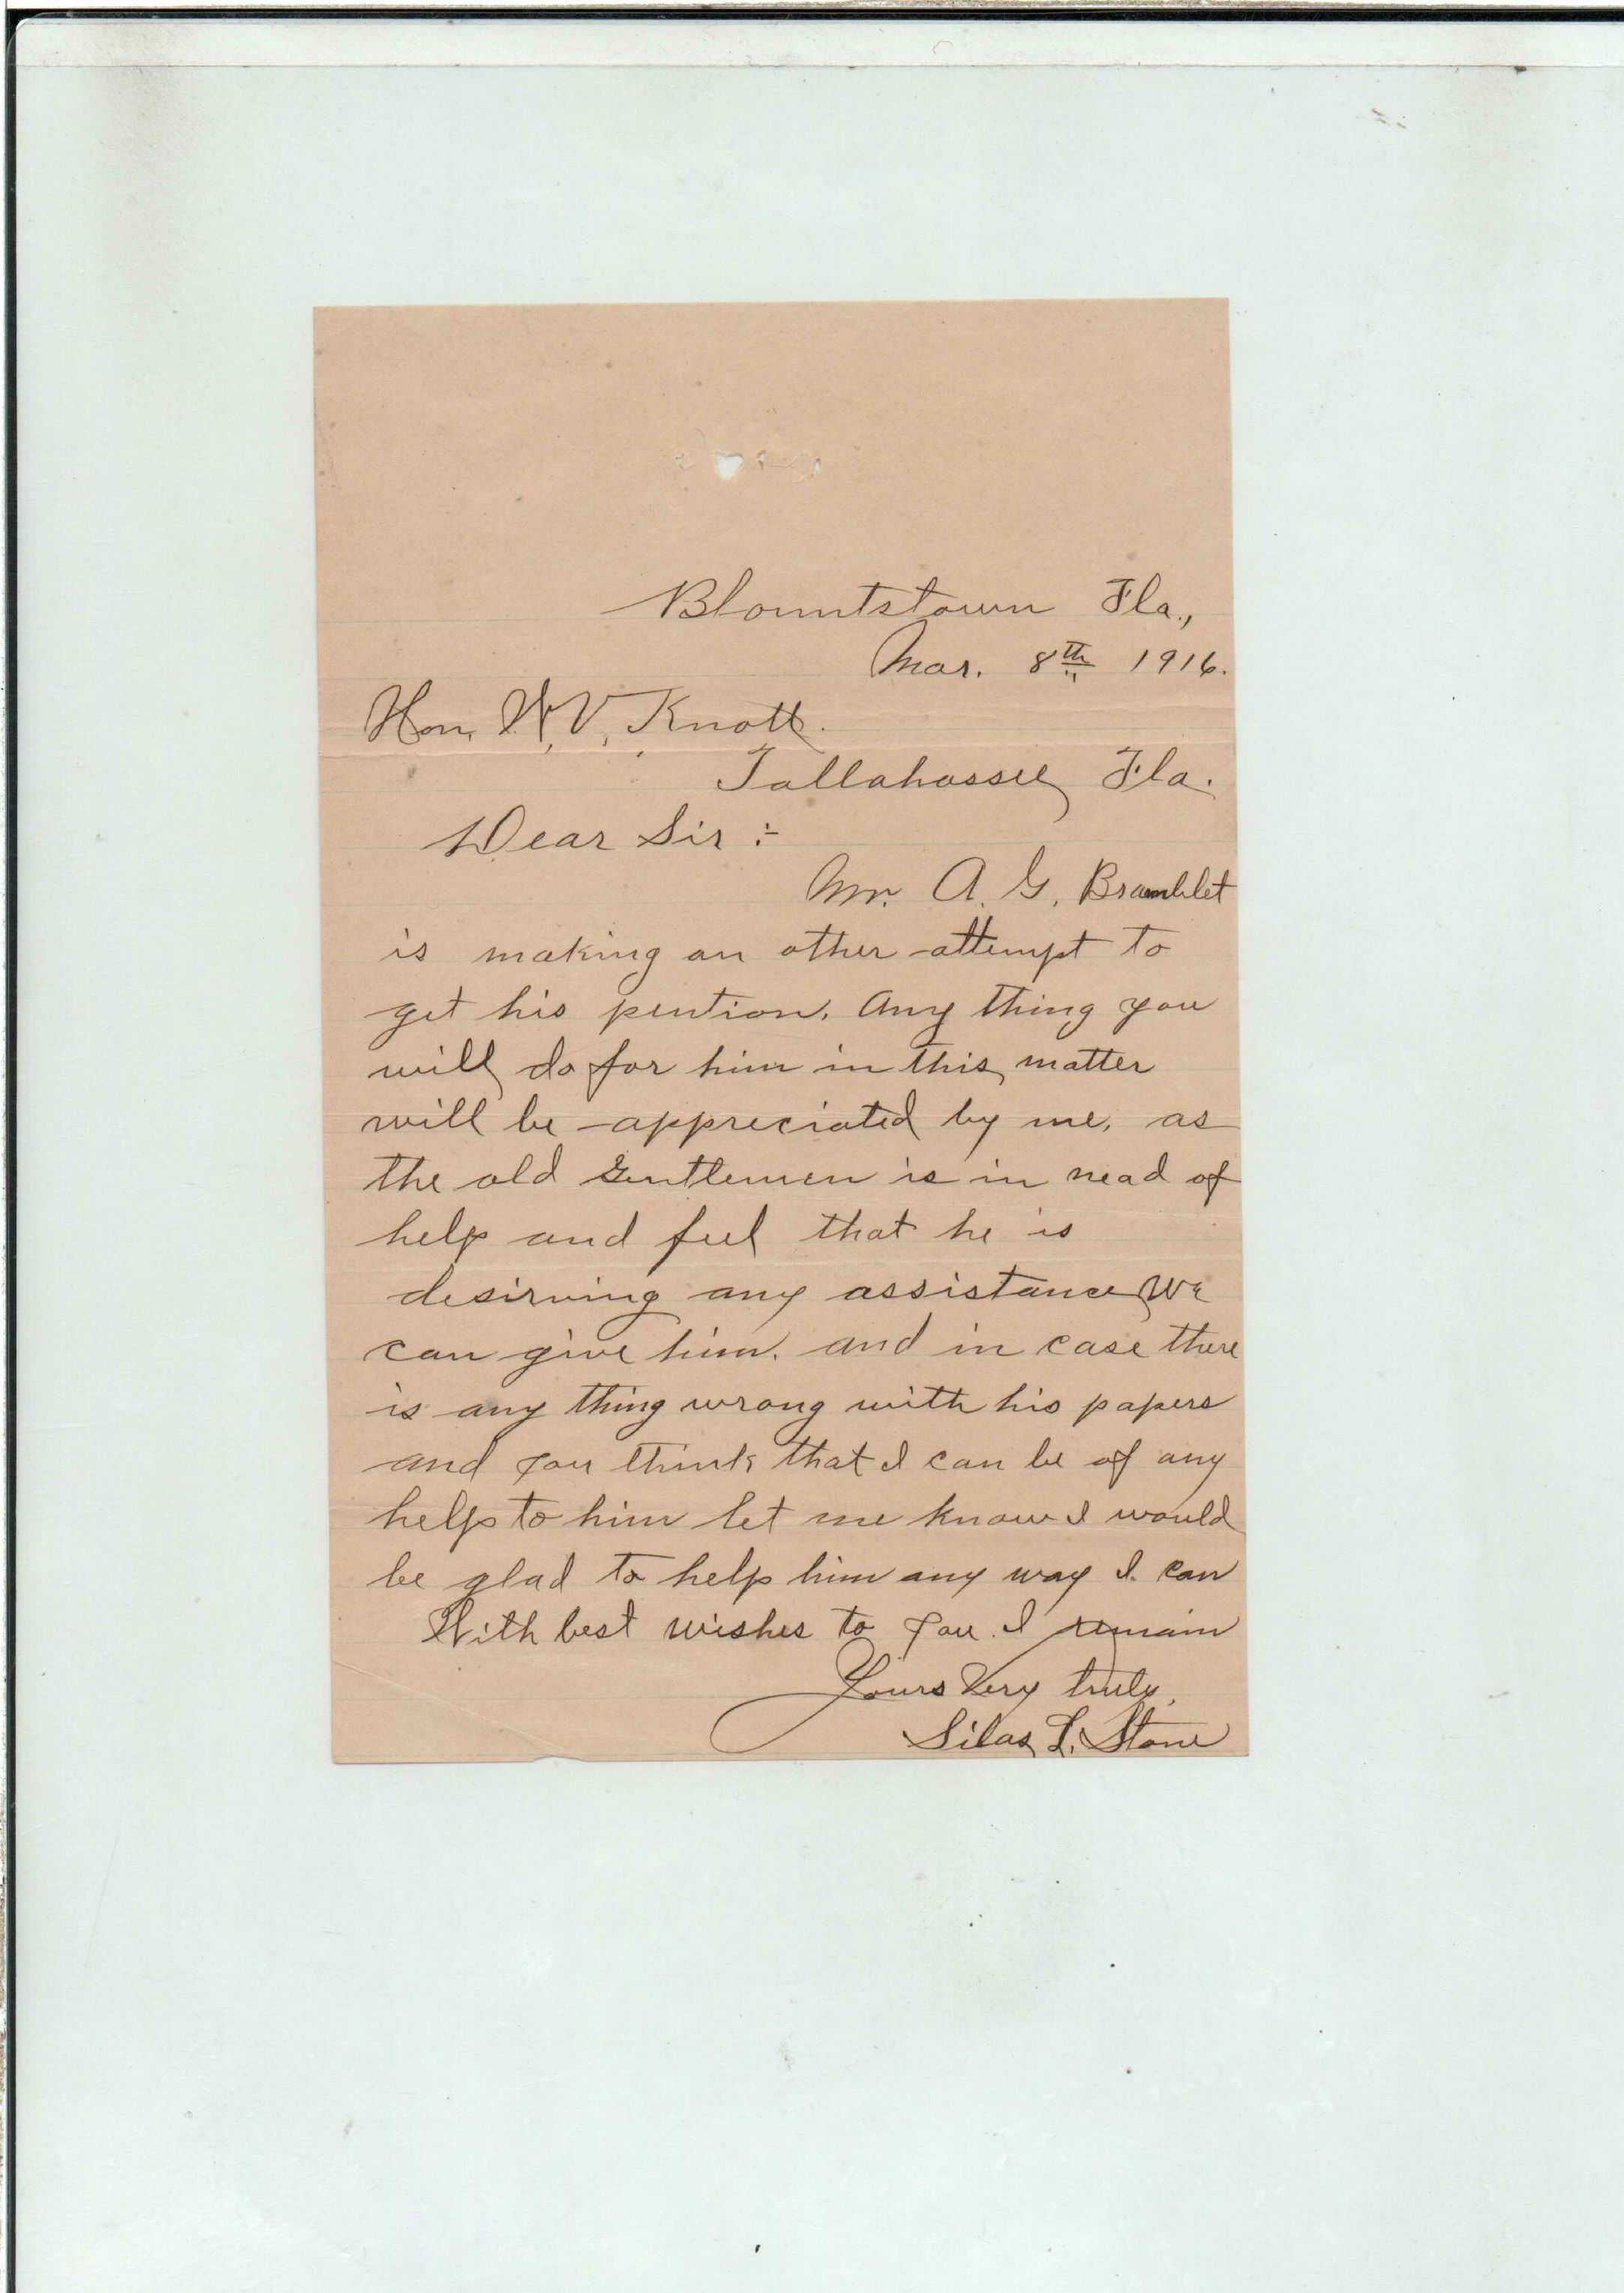 Blountstown Fla.,
Mar. 8th 1916.
Hon. W. V. Knott.
Tallahassee, Fla.
Dear Sir :-
Mr. A. G. Bramblet
is making an other attempt to
get his pention. Any thing you
will do for him in this matter
will be appreciated by me, as
the old Gentlemen is in nead of
help and feel that he is
desirving any assistance We
can give him. and in case there
is any thing wrong with his papers
and you think that I can be of any
help to him let me know I would
be glad to help him any way I can
With best wishes to you I remain
Yours Very truly,
Silas L. Stone